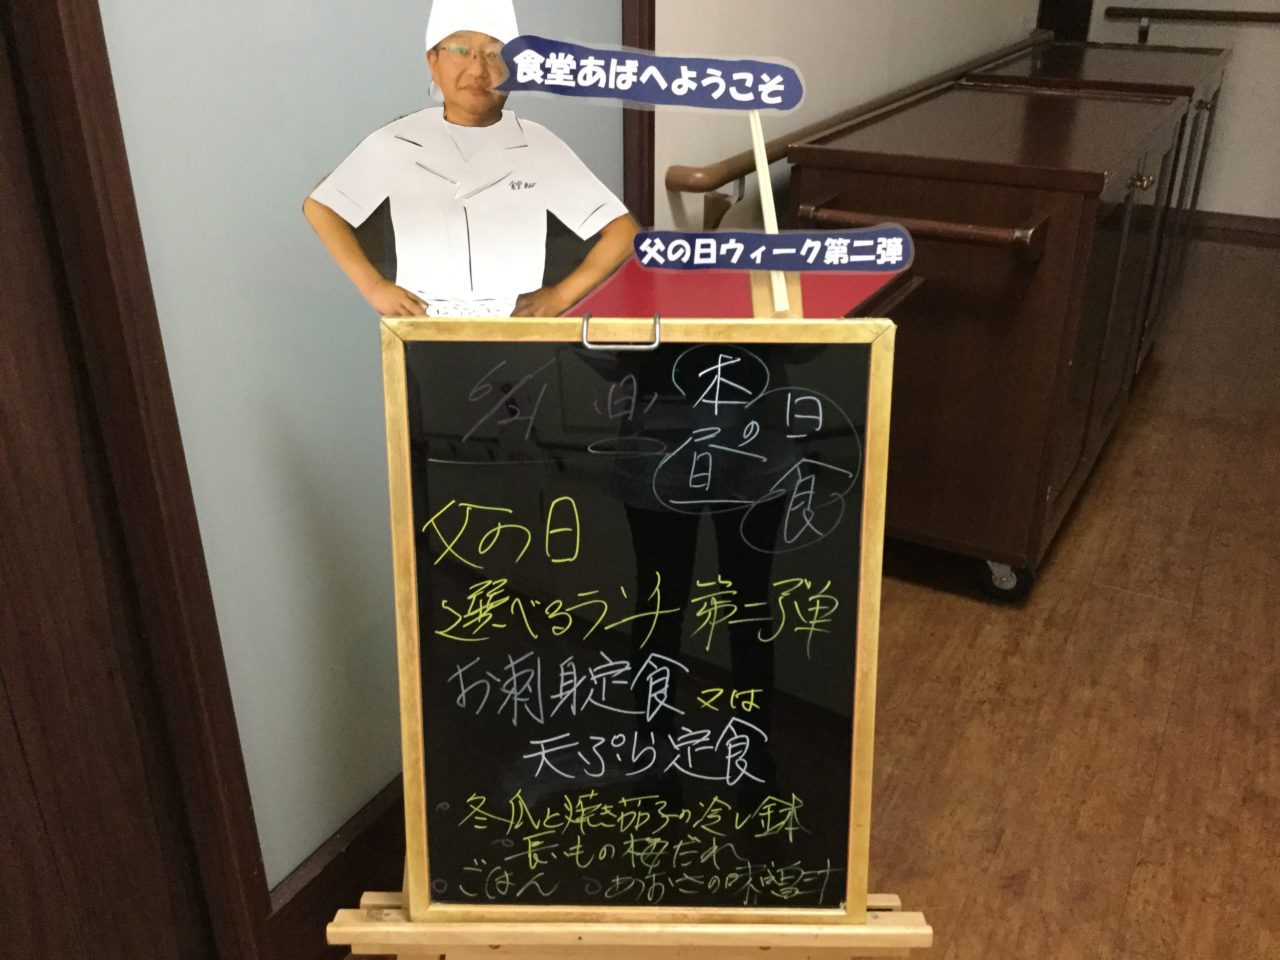 食堂あばへようこそ
食堂あば
父の日ウィーク第二弾
6/21 (日) 本日
の昼食
父の日
選べるランチ 第二弾
お刺身定食 又は
天ぷら定食
冬瓜と焼き茄子の冷し鉢
長いもの梅だれ
ごはん あおさの味噌汁